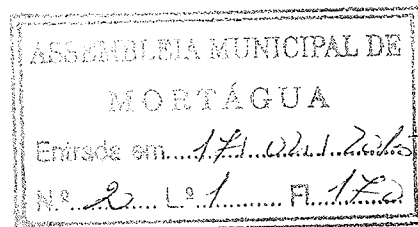 ASSEMBLEIA MUNICIPAL DE
MORTÁGUA
Entrada em....17/02/2015
N.º...2.... L.º.1......... Fl....17